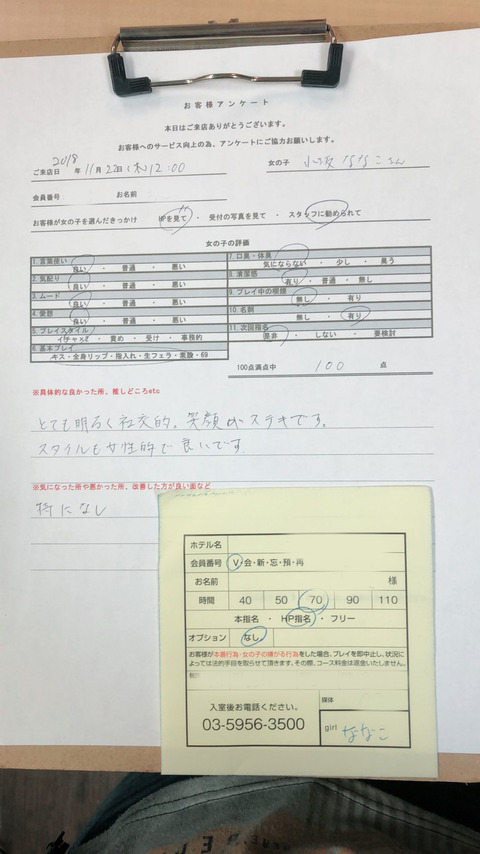 お客様アンケート
本日はご来店ありがとうございます。
お客様へのサービス向上の為、アンケートにご協力お願いします。
ご来店日 2018年 11月 22日(木) 12:00 女の子 小坂ななこさん
会員番号 お名前
お客様が女の子を選んだきっかけ HPを見て ・ 受付の写真を見て ・ スタッフに勧められて
女の子の評価
1. 言葉使い
良い ・ 普通 ・ 悪い
2. 気配り
良い ・ 普通 ・ 悪い
3. ムード
良い ・ 普通 ・ 悪い
4. 愛想
良い ・ 普通 ・ 悪い
5. プレイスタイル
イチャイチャ ・ 責め ・ 受け ・ 事務的
6. 基本プレイ
キス・全身リップ・指入れ・生フェラ・素股・69
7. 口臭・体臭
気にならない ・ 少し ・ 臭う
8. 清潔感
有り ・ 普通 ・ 無し
9. プレイ中の喫煙
無し ・ 有り
10. 名刺
無し ・ 有り
11. 次回指名
是非 ・ しない ・ 要検討
100点満点中 100 点
※具体的な良かった所、推しどころetc
とても明るく社交的。笑顔がステキです。
スタイルも女性的で良いです。
※気になった所や悪かった所、改善した方が良い面など
特になし
ホテル名
会員番号 V・会・新・忘・預・再
お名前 様
時間 40 50 70 90 110
本指名 ・ HP指名 ・ フリー
オプション なし
お客様が本番行為・女の子の嫌がる行為をした場合、プレイを即中止し、状況に
よっては法的手段を取らせて頂きます。その際、コース料金は返金いたしません。
入室後お電話ください。
03-5956-3500
媒体
girl ななこ